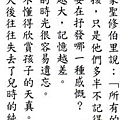 家聖修伯里說：「所有的
孩，只是他們多半不記得
要在抒發哪一種感慨？
越大，記憶越差。
的時光很容易遺忘。
不懂得欣賞孩子的天真。
大後往往失去了兒時的純